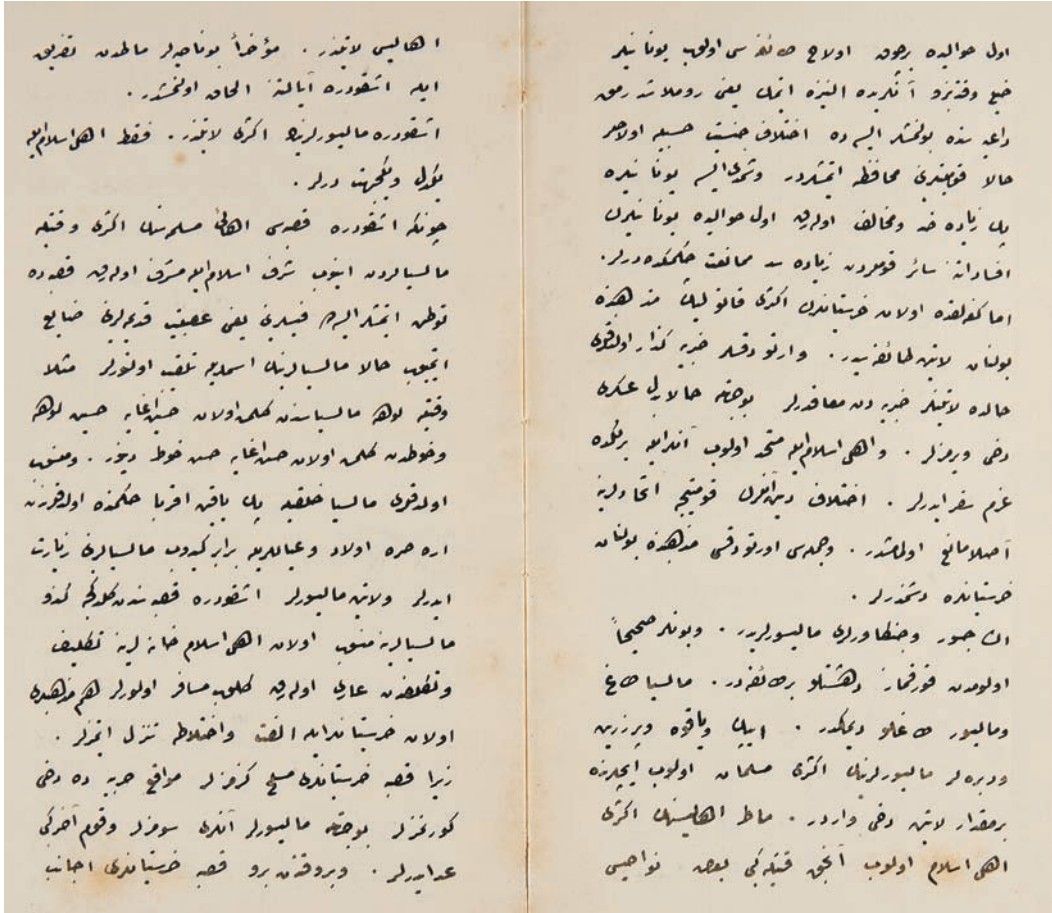 اول حوالیده برچوق اولاح طائفه سی اولوب یونانیلر
خیلی وقتدنبرو آنلریده النیزه ایتمك یعنی روملاشدرمق
داعیه سنده بولنمشلر ایسه ده اختلاف جنسیت حسبیله اولاحلر
حالا قومیتلرینی محافظه ایتمشلردر وشمدی ایسه یونانیلره
پك زیاده ضد ومخالف اوله رق اول حوالیده یونانیلرك
افساداتنه سائر قوملردن زیاده سد ممانعت چكمكده درلر.
اما كغه لقده اولان خرستیانلرك اكثری قاتولیك مذهبنده
بولنان لاتین طائفه سیدر. وارتودقسلر جزیه كذار اولدقلری
حالده لاتینلر جزیه دن معافدرلر بوجهتله حالا بدل عسكری
دخی ویرمزلر. واهل اسلام ایله متحد اولوب آنلر ایله برلكده
عزم سفر ایدرلر. اختلاف دین آنلرك قومیتجه اتحادلرینه
اصلا مانع اولمامشدر. وجمله سی اورتودقسی مذهبنده بولنان
خرستیانلره دشمندرلر.
اڭ جسور وجنكاورلری مالیسورلریدر. وبونلر صحیحاً
اولومدن قورقماز دهشتلو بر طائفه در. مالسیا طاغ
ومالیسور طاغلو دیمكدر. ایپك ویاقوه وپرزرین
ودبره لر مالیسورلرینك اكثری مسلمان اولوب ایچلرنده
برمقدار لاتین دخی واردر. ماطر اهالیسنك اكثری
اهل اسلام اولوب آنجق قتیله كبی بعض نواحیسی
اهالیسی لاتیندر. مؤخراً بو ناحیه لر ماطدن تفریق
ایله اشقودره ایالتنه الحاق اولنمشدر.
اشقودره مالیسورلرینك اكثری لاتیندر. فقط اهل اسلام ایله
یكدل ویكجهت درلر.
چونكه اشقودره قصبه سی اهالی مسلمه سنك اكثری وقتیله
مالسیالردن اینوب شرف اسلام ایله مشرف اوله رق قصبه ده
توطن ایتمشلر ایسه ده فیسلرینی یعنی عصبیت قدیمه لرینی ضایع
ایتمیوب حالا مالسیالرینك اسملریله تلقیب اولنورلر مثلا
وقتیله لوهه مالسیاسندن كلمش اولان حسین اغایه حسین لوهه
وخوطدن كلمش اولان حسن اغایه حسن خوط دینور. ومنسوب
اولدقلری مالسیا خلقیله پك یاقین اقربا حكمنده اولدقلرندن
اره صره اولاد وعیاللریله برابر كیدوب مالسیالرینی زیارت
ایدرلر ولاتین مالیسورلر اشقودره قصبه سندن كلدكجه كندو
مالسیالرینه منسوب اولان اهل اسلام خانه لرینه تكلیف
وتكلفدن عاری اوله رق كلوب مسافر اولورلر هم مذهبلری
اولان خرستیانلر ایله الفت واختلاطه تنزل ایتمزلر.
زیرا قصبه خرستیانلری مسلح كزمزلر مواقع حربیه ده دخی
كورنمزلر بوجهتله مالیسورلر آنلری سومزلر وقوم آخر كبی
عد ایدرلر. وبر وقتدن برو قصبه خرستیانلری اجانب